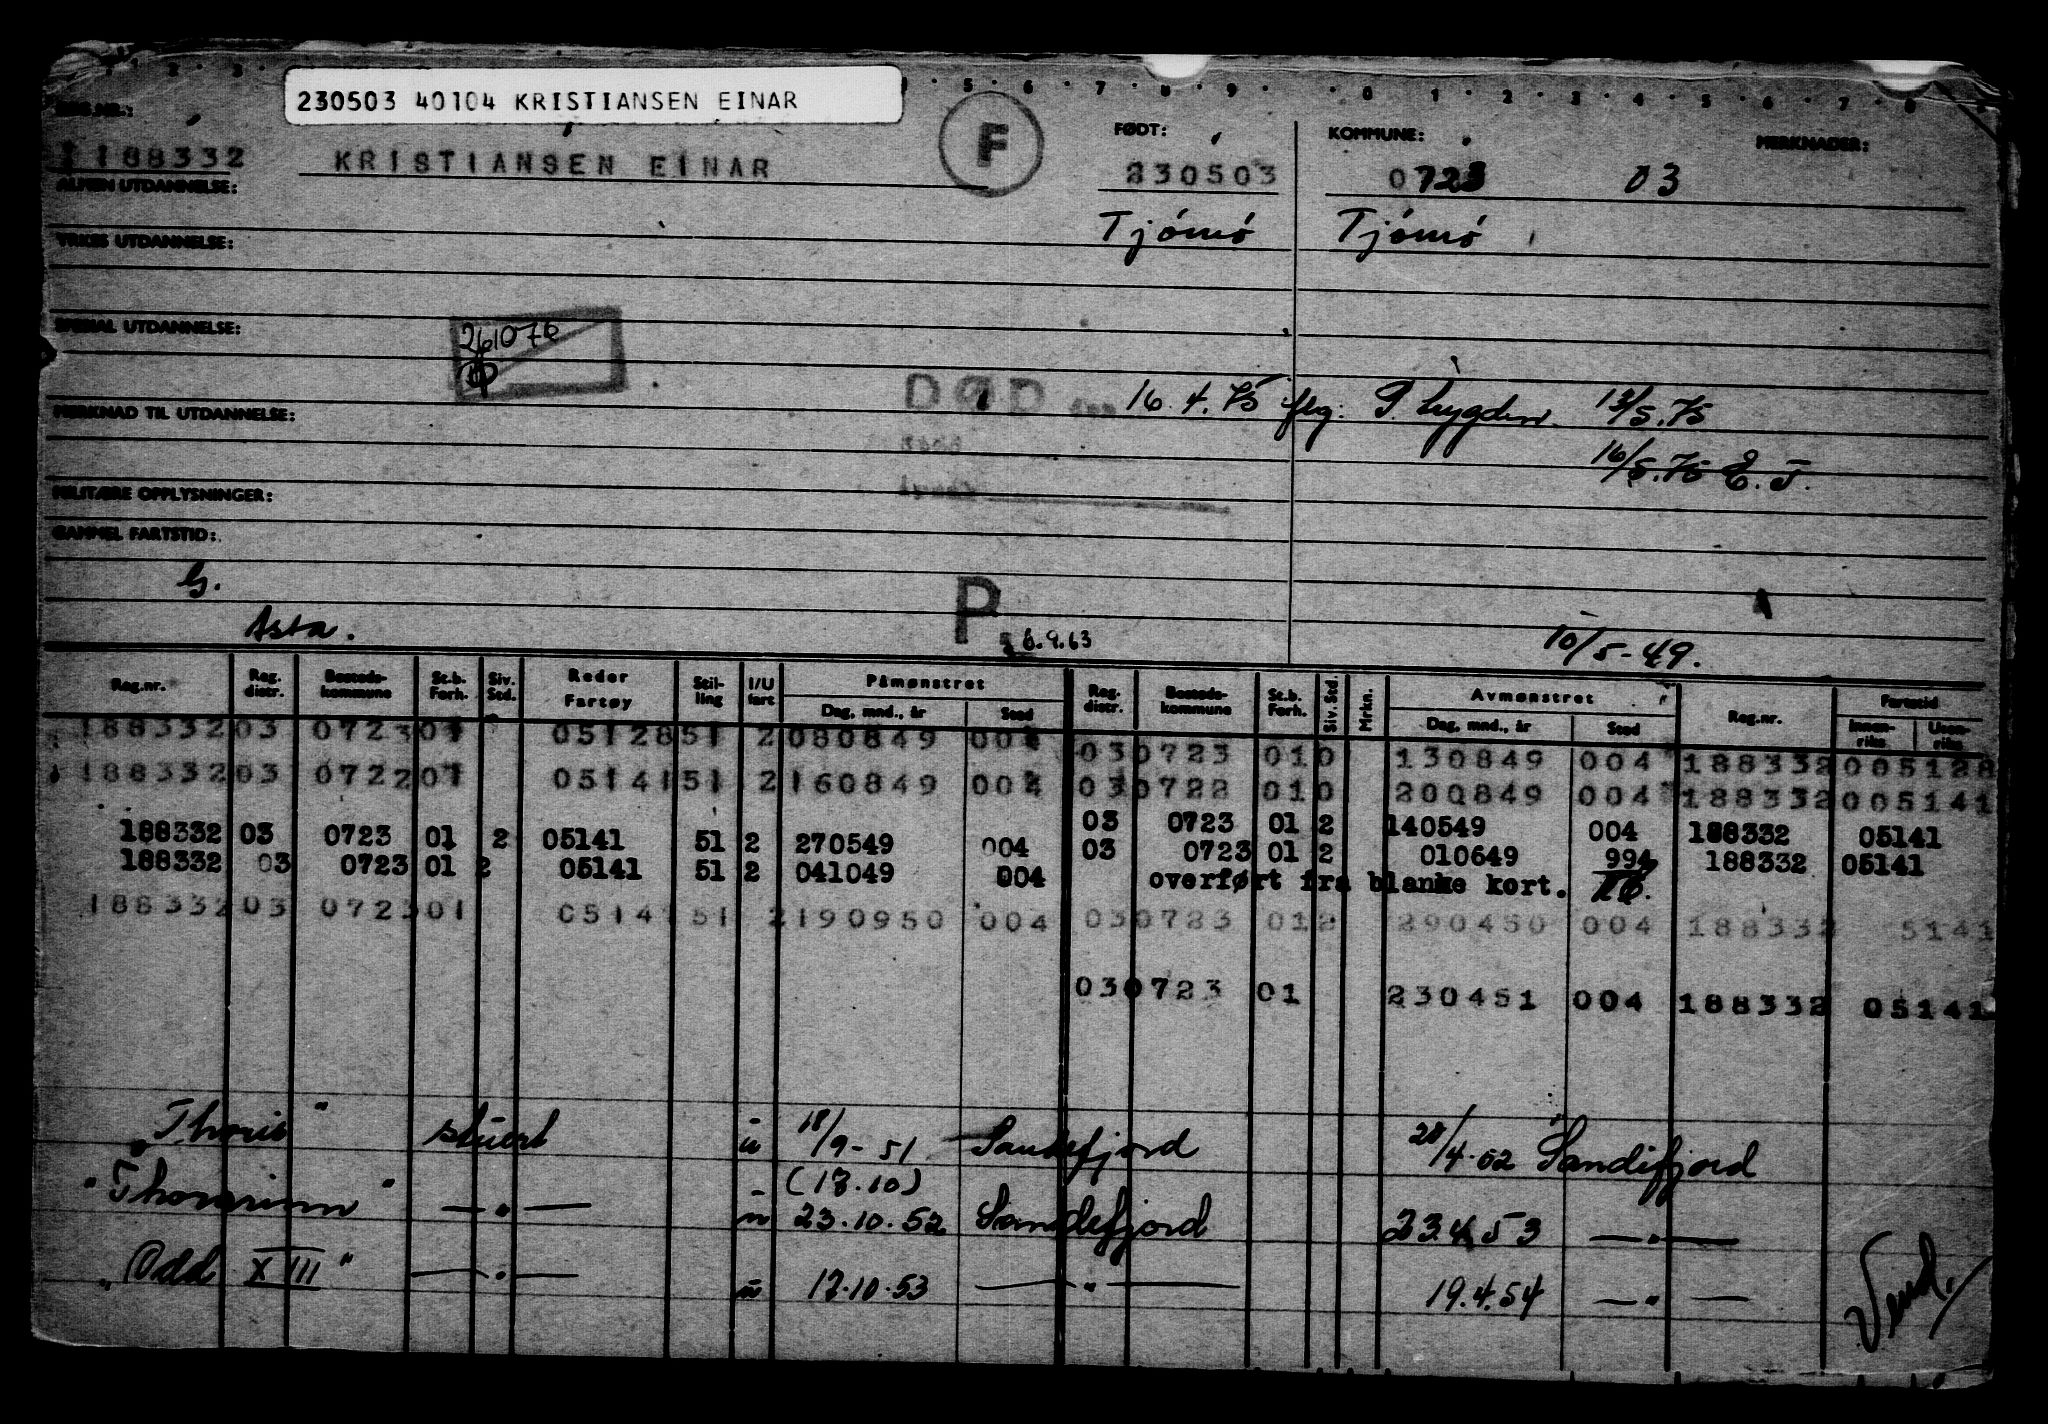 230503 40104 KRISTIANSEN EINAR
1 2 3 5 6 7 8 9 0 1 2 3 4 5 6 7 8
REG.NR.: F FØDT: KOMMUNE: MERKNADER:
188332 KRISTIANSEN EINAR 230503 0723 03
ALMEN UTDANNELSE:
Tjömö Tjömö
YRKES UTDANNELSE:
SPESIAL UTDANNELSE:
261076
DØD 16.4.75 flg. P. trygden 13/5.75
MERKNAD TIL UTDANNELSE:
16/5.75 E.J.
MILITÆRE OPPLYSNINGER:
GAMMEL FARTSTID:
G.
P
Asta. 6.9.63 10/5-49.
Reg.nr. Reg. distr. Bosteds- kommune St.b. Forh. Siv. Std. Reder Fartøy Stil- ling I/U fart Påmønstret Dag, mnd., år Sted Reg. distr. Bosteds- kommune St.b. Forh. Siv. Std. Mrkn. Avmønstret Dag, mnd., år Sted Reg.nr. Fartstid Innen- riks Uten- riks
188332 03 0723 01 05128 51 2 080849 004 03 0723 01 0 130849 004 188332 005128
188332 03 0722 01 05141 51 2 160849 004 03 0722 01 0 200849 004 188332 005141
188332 03 0723 01 2 05141 51 2 270549 004 03 0723 01 2 140549 004 188332 05141
188332 03 0723 01 2 05141 51 2 041049 004 03 0723 01 2 010649 994 188332 05141
overført fra blanke kort.
188332 03 0723 01 05141 51 2 190950 004 03 0723 01 2 290450 004 188332 5141
03 0723 01 230451 004 188332 05141
"Thoris" stuert u 18/9-51 Sandefjord 28/4-52 Sandefjord
(13.10)
"Thorarinn" — " — u 23.10.52 Sandefjord 23.4.53 — " —
"Odd XIII" — " — u 17.10.53 — " — 19.4.54 — " —
Vend.